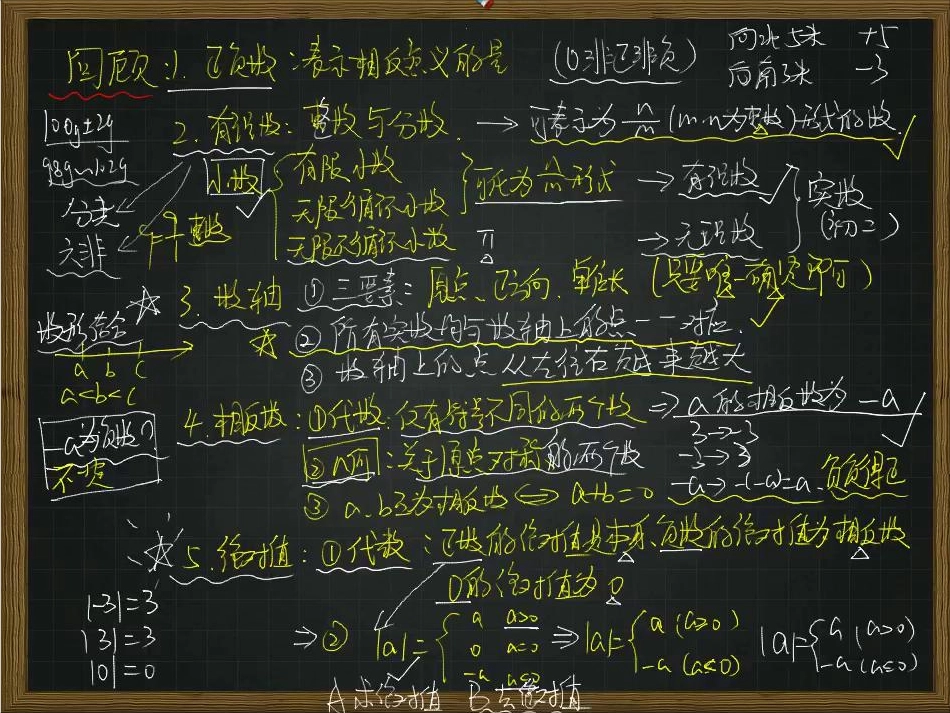 回顾:1.正负数:表示相反意义的量 (0非正非负) 向北5米 +5
向南3米 -3
100g±2g
2.有理数:整数与分数. → 可表示为 n/m (m.n为整数)形式的数.
98g~102g
小数 有限小数
无限循环小数 可化为 n/m 形式 → 有理数 实数
无限不循环小数 π → 无理数 (初二)
分类
六非
整数
3.数轴 ①三要素:原点、正方向、单位长 (只要唯一确定即可)
数形结合
②所有实数均与数轴上的点一一对应.
a b c
③数轴上的点从左往右越来越大
a<b<c
4.相反数:①代数:仅有符号不同的两个数 ⇒ a的相反数为 -a
-a为负数?
不一定
3→-3
②几何:关于原点对称的两个数
-3→3
③a、b互为相反数 ⇔ a+b=0
-a→-(-a)=a、负负得正
5.绝对值:①代数:正数的绝对值是本身、负数的绝对值为相反数
0的绝对值为0
|-3|=3
|3|=3
|0|=0
⇒② |a|={ a a>0
0 a=0
-a a<0
⇒ |a|={ a (a>0)
-a (a≤0)
|a|={ a (a>0)
-a (a≤0)
A求绝对值 B去绝对值